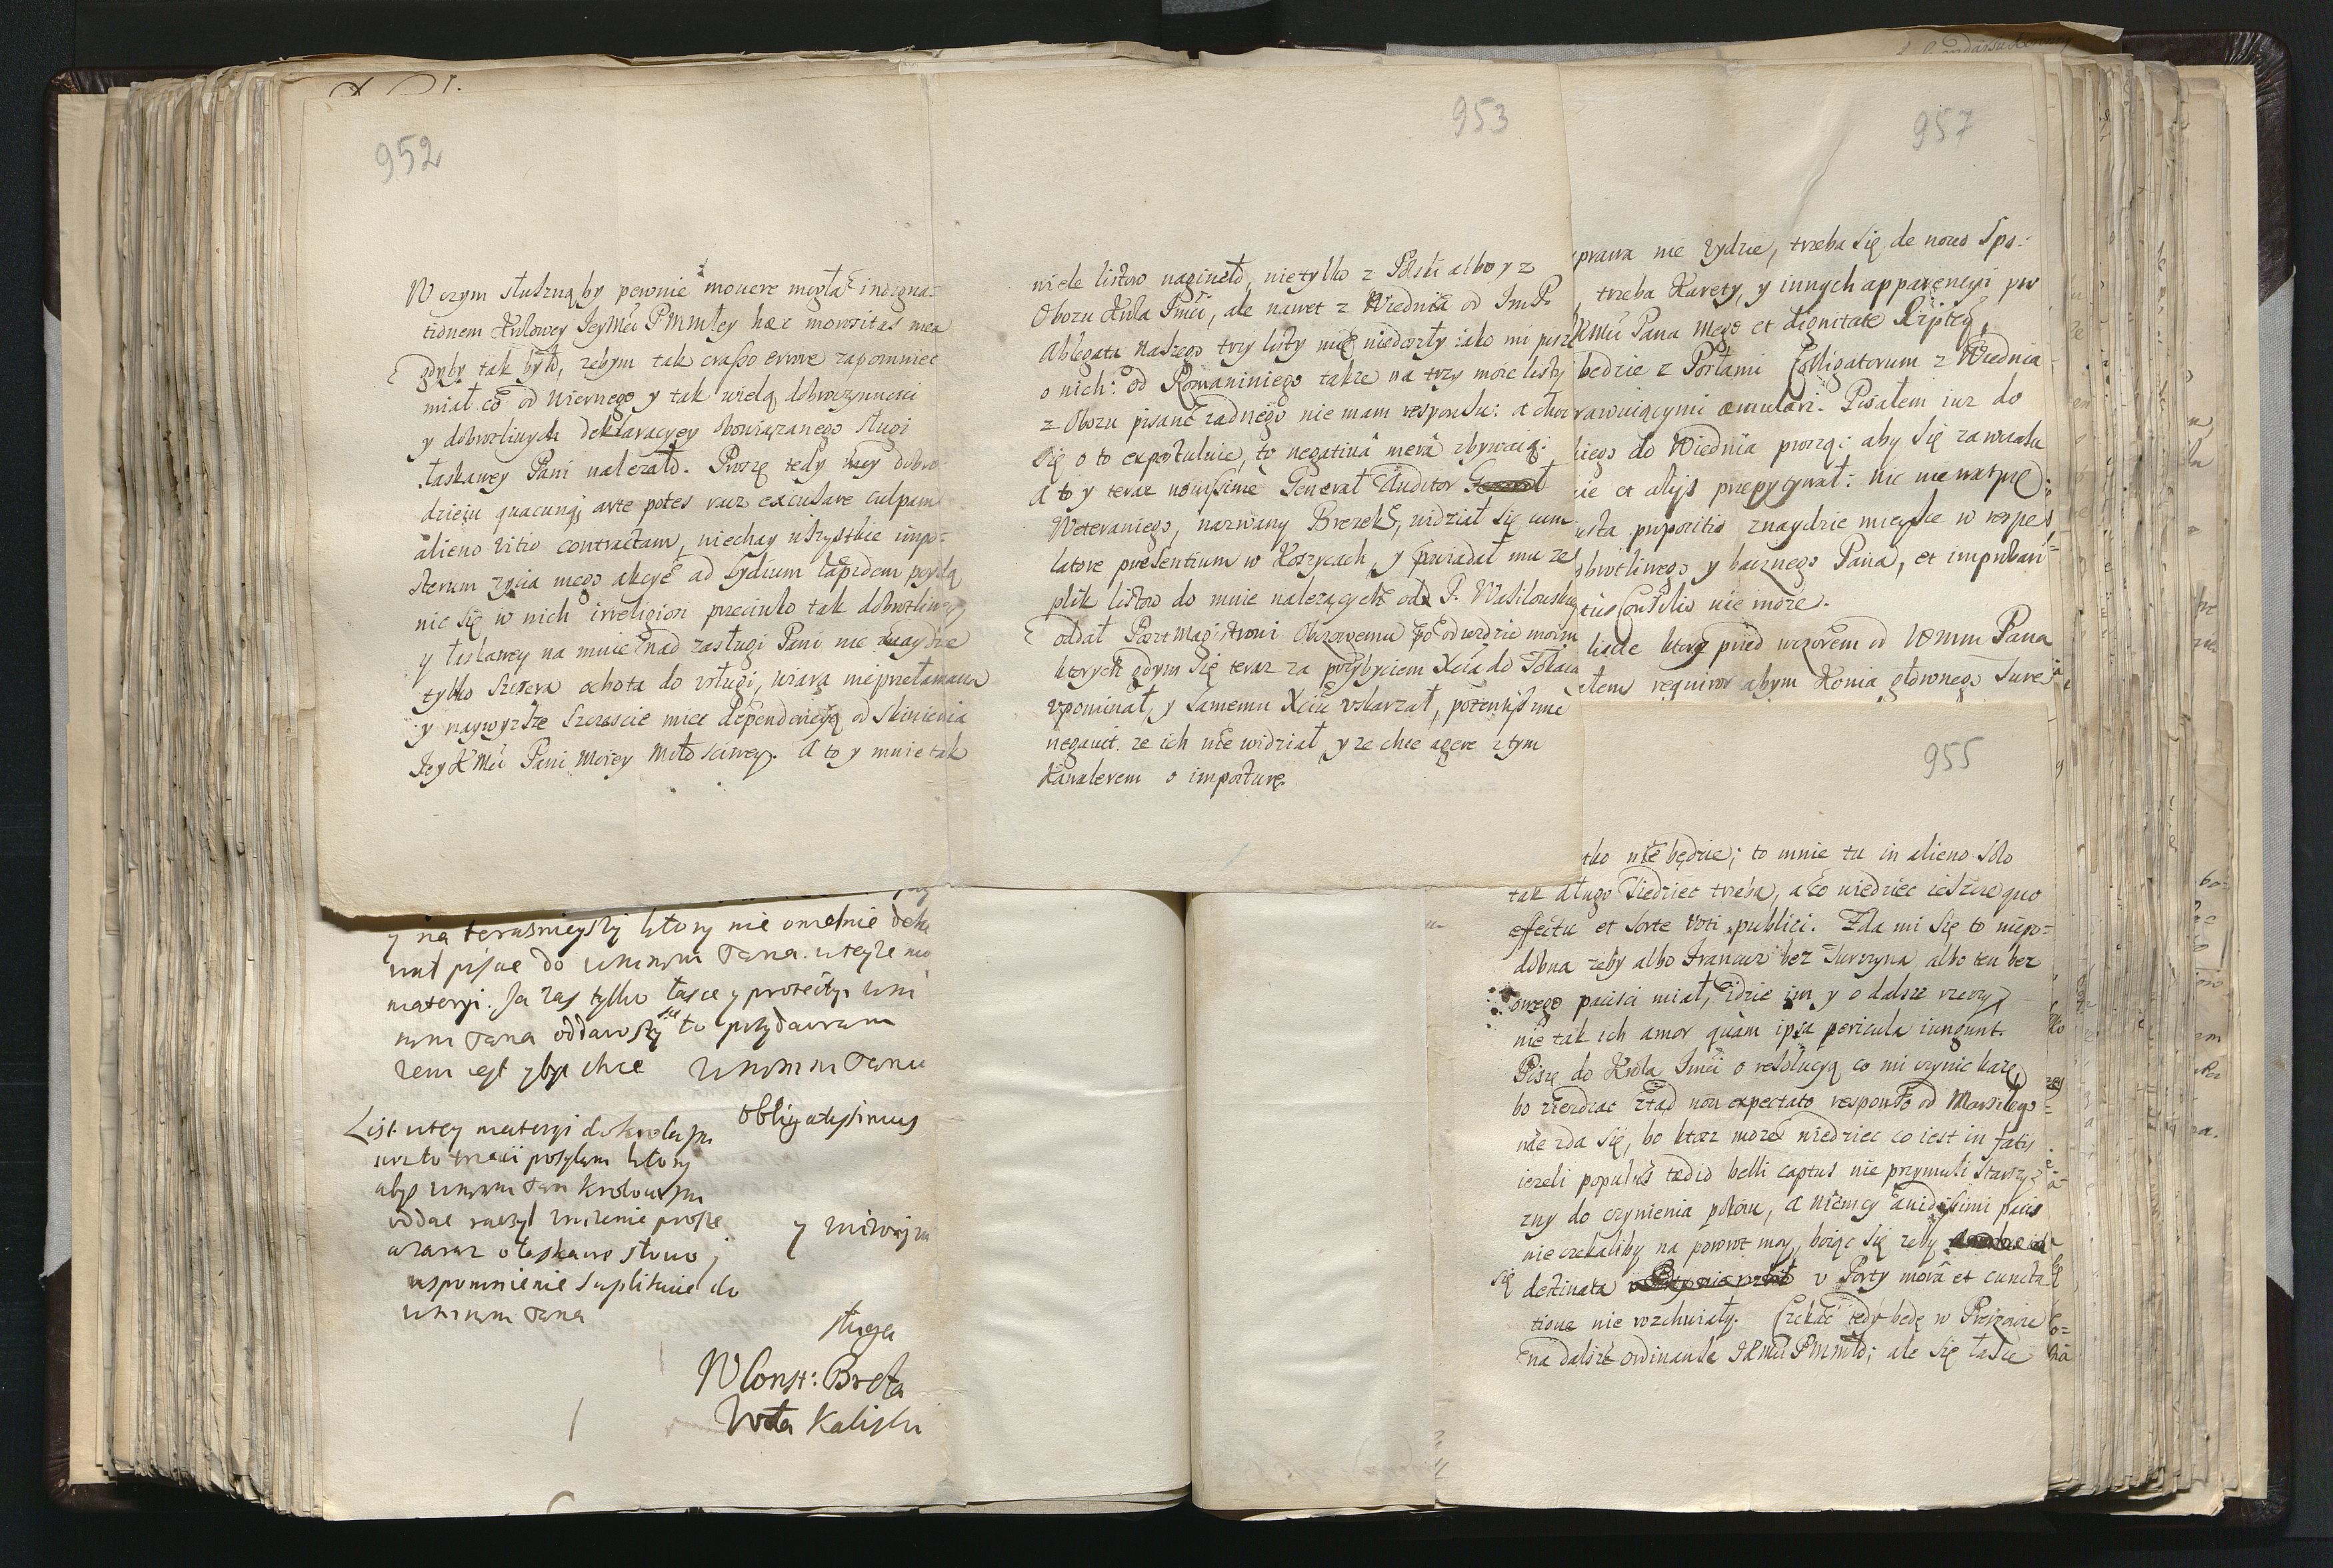 952
W czym słuszną by pewnie mouere mogła indigna-
tionem Krolowey JeyMći PMmłey hæc morositas mea
gdyby tak było, zebym tak crasso errore zapomniec
miał co od wiernego y tak wielą dobroczynnosci
y dobrotliwych deklaracyey obowiązanego sługi
łaskawey Pani nalezało. Proszę tedy moy dobro-
dzieiu quacunq; arte potes racz excusare culpam
alieno vitio contractam, niechay wszystkie impo-
sterum zycia mego akcye ad Lydium lapidem poydą
nic się w nich irreligiosi przeciwko tak dobrotliwey
y łaskawey na mnie nad zasługi Pani nie znaydzie
tylko szczera ochota do usługi, wiara nieprzełamana
y naywyzsze szczescie miec dependencyą od skinienia
Jey KMći Pani Moiey Miłosciwey. A to y mnie tak
953
wiele listow naginęło, nie tylko z Polski albo y z
Obozu Krola Jmći, ale nawet z Wiednia od JmP.
Ablegata naszego trzy listy mię niedoszły iako mi pisze
o nich: od Romaniniego takze na trzy moie listy
z Obozu pisane zadnego nie mam responsu: a choc
się o to expostuluie, to negatiuâ merâ zbywaią:
A to y teraz nouissime Generał Auditor
Weteraniego, nazwany Brezek, widział się cum
latore præsentium w Koszycach, y powiadał mu ze
plik listow do mnie nalezących od P. Wasilowskiego
oddał PosztMagistrowi Obozowemu po odiezdzie moim
ktorych gdym się teraz za przybyciem Xcia do Tokaia
upominał, y samemu Xciu uskarzał, potentissime
negauit. ze ich nie widział y ze chce agere z tym
Kawalerem o imposturę.
957
prawa nie zydzie, trzeba się de nouo spo-
trzeba Karety, y innych apparencyi pro
KMći Pana Mego et dignitate Rzptey,
będzie z Posłami Colligatorum z Wiednia
rawuiącymi æmulari. Pisałem iuz do
kiego do Wiednia prosząc aby się zawczasu
ie et alijs przepytywał: nic nie wątpię
usta propositio znaydzie mieysce w respek
dobrotliwego y bacznego Pana, et improbari
consilio nie moze.
liscie ktory przed wczorem od WMM Pana
requiror abym Konia głownego Ture
955
tko nie będzie; to mnie tu in alieno solo
tak długo siedziec trzeba, a co wiedziec ieszcze quo
effectu et sorte voti publici. Zda mi się to niepo-
dobna zeby albo Francuz bez Turczyna albo ten bez
owego pacisci miał, idzie im y o dalsze rzeczy
nie tak ich amor quàm ipsa pericula iungunt.
Piszę do Krola Jmći o resolucyą co mi czynic kaze,
bo ziezdzac ztąd non expectato responso od Marsilego
nie zda się, bo ktoz moze wiedziec co iest in fatis
iezeli populus tædio belli captus nie przymusi starszy-
zny do czynienia pokoiu, a Niemcy auidissimi pacis
nie czekaliby na powrot moy, boiąc się zeby
się destinata u Porty morâ et cuncta
tione nie rozchwiały. Czekać tedy będę w
na dalsze ordinanse JKMći PMmłło; ale się łasce
y na terasnieyszy ktory nie omelnie
pisac do WMMM Pana. w teyze
materyi. Ja zas tylko łasce y protectyi WM
MM Pana oddawszy się to przydawam
zem iest y byc chce WMMM Panu
obligatissimus
List w tey materyi do krola Jm
tresci posyłam ktory
abys WMMM Pan krolowi Jm
oddac raczył unizenie prosze
a zaraz o łaskawe słowo y
wspomnienie suplikuie do
WMMM Pana
sługa
W Const: Brzta
Wda Kaliski